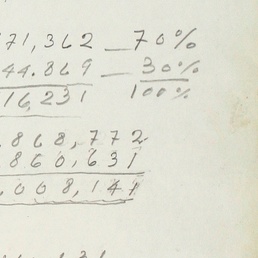 71,362 — 70%
44.869 — 30%
16,231 100%
868,772
860,631
,008,141